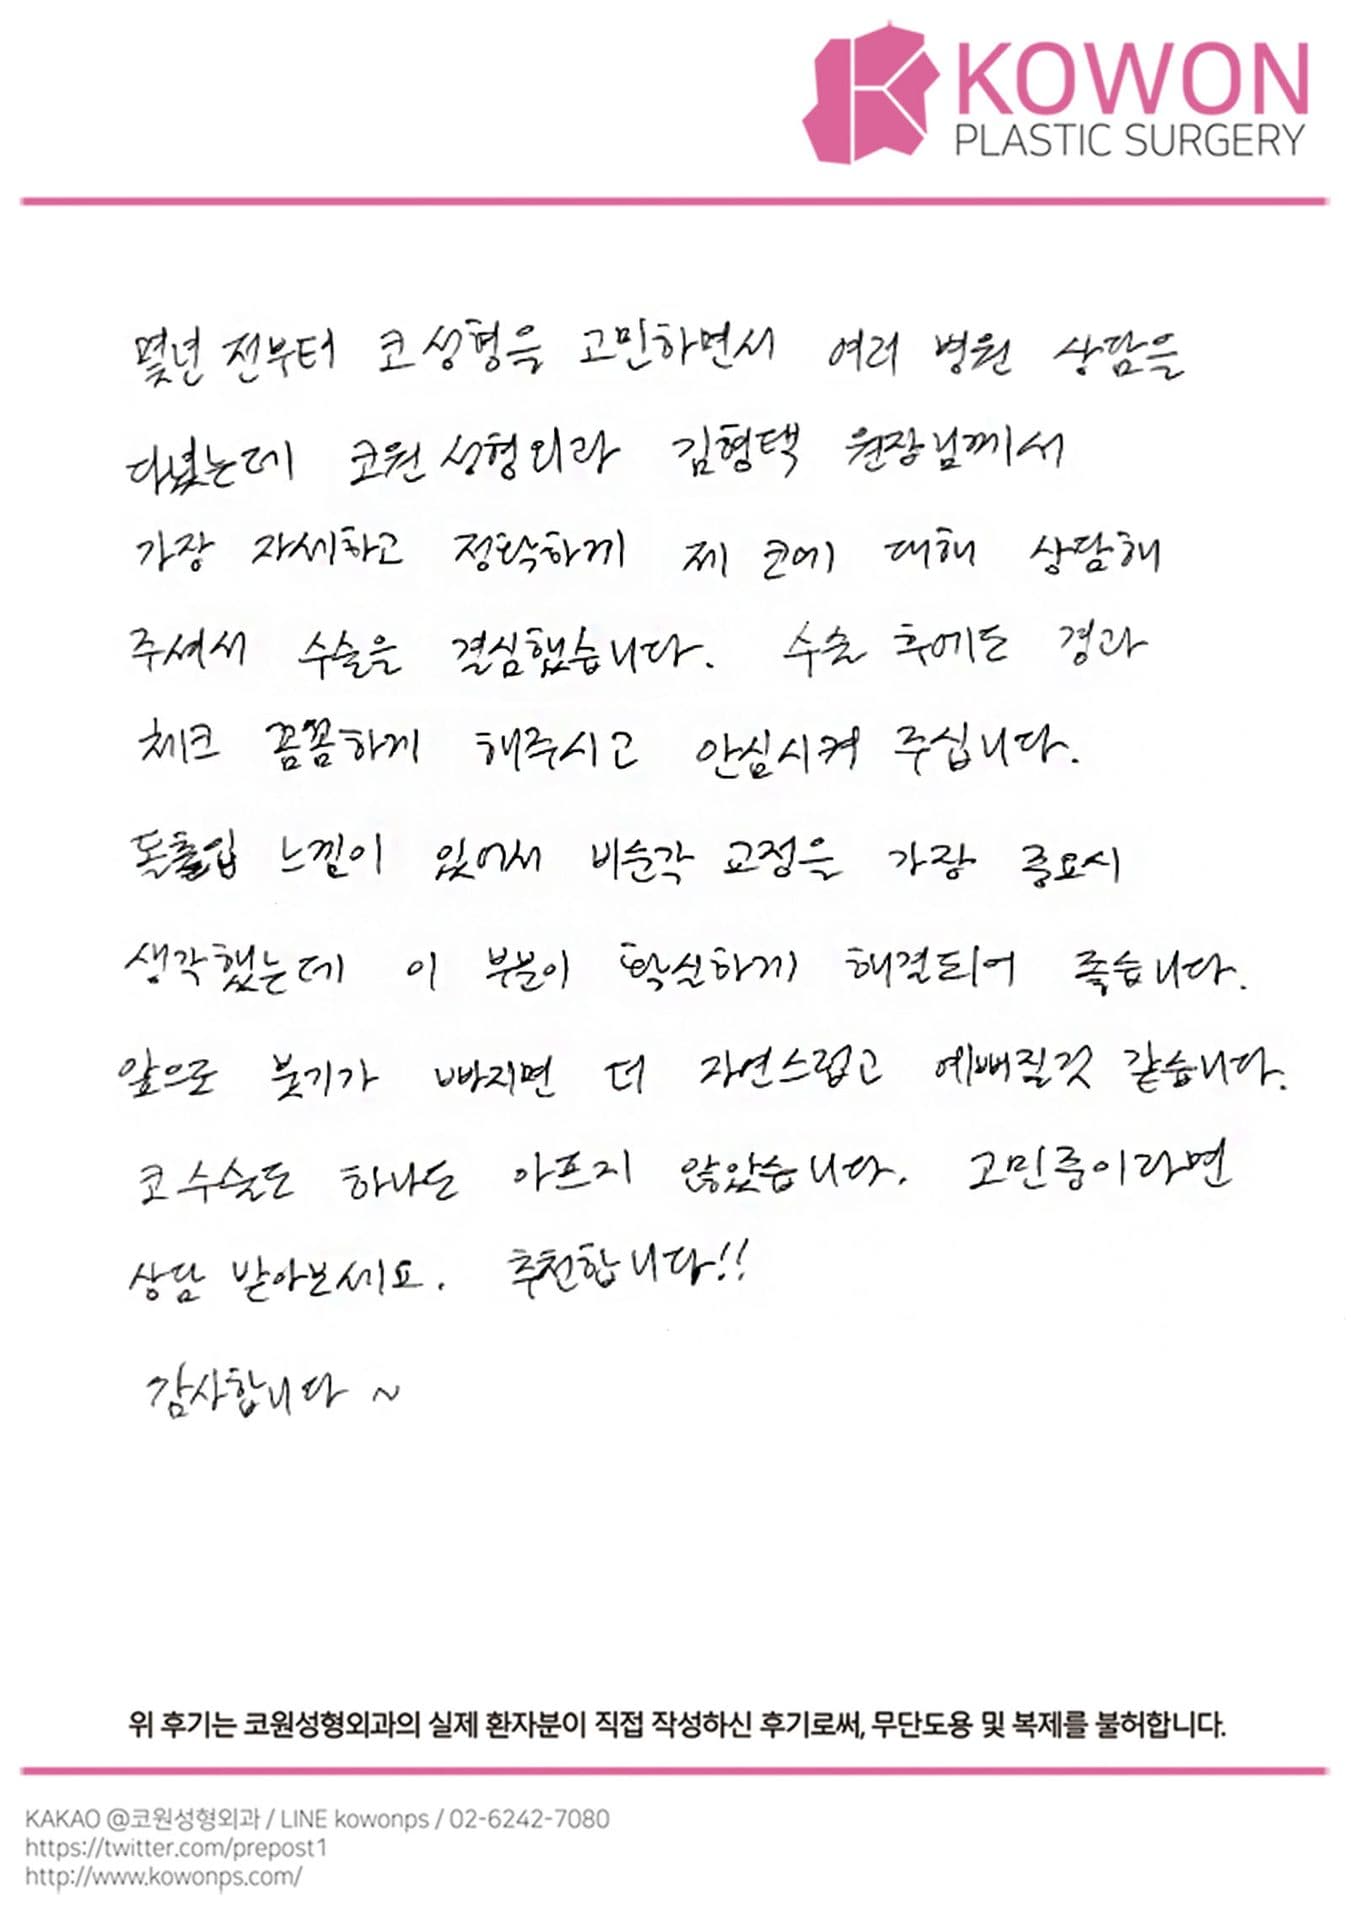 KOWON
PLASTIC SURGERY
몇년 전부터 코성형을 고민하면서 여러 병원 상담을
다녔는데 코원성형외과 김형택 원장님께서
가장 자세하고 정확하게 제 코에 대해 상담해
주셔서 수술을 결심했습니다. 수술 후에도 경과
체크 꼼꼼하게 해주시고 안심시켜 주십니다.
돌출입 느낌이 있어서 비순각 교정을 가장 중요시
생각했는데 이 부분이 확실하게 해결되어 좋습니다.
앞으로 붓기가 빠지면 더 자연스럽고 예뻐질것 같습니다.
코수술도 하나도 아프지 않았습니다. 고민중이라면
상담 받아보세요. 추천합니다!!
감사합니다 ~
위 후기는 코원성형외과의 실제 환자분이 직접 작성하신 후기로써, 무단도용 및 복제를 불허합니다.
KAKAO @코원성형외과 / LINE kowonps / 02-6242-7080
https://twitter.com/prepost1
http://www.kowonps.com/